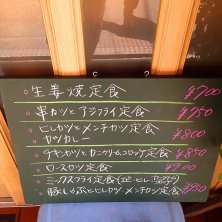 生姜焼定食 ¥700
串カツとアジフライ定食 ¥750
ヒレカツとメンチカツ定食
カツカレー ¥800
チキンカツとカニクリームコロッケ定食 ¥850
ロースカツ定食 ¥900
ミックスフライ定食(エビ・ヒレ
豚しゃぶとヒレカツ メンチカツ定食